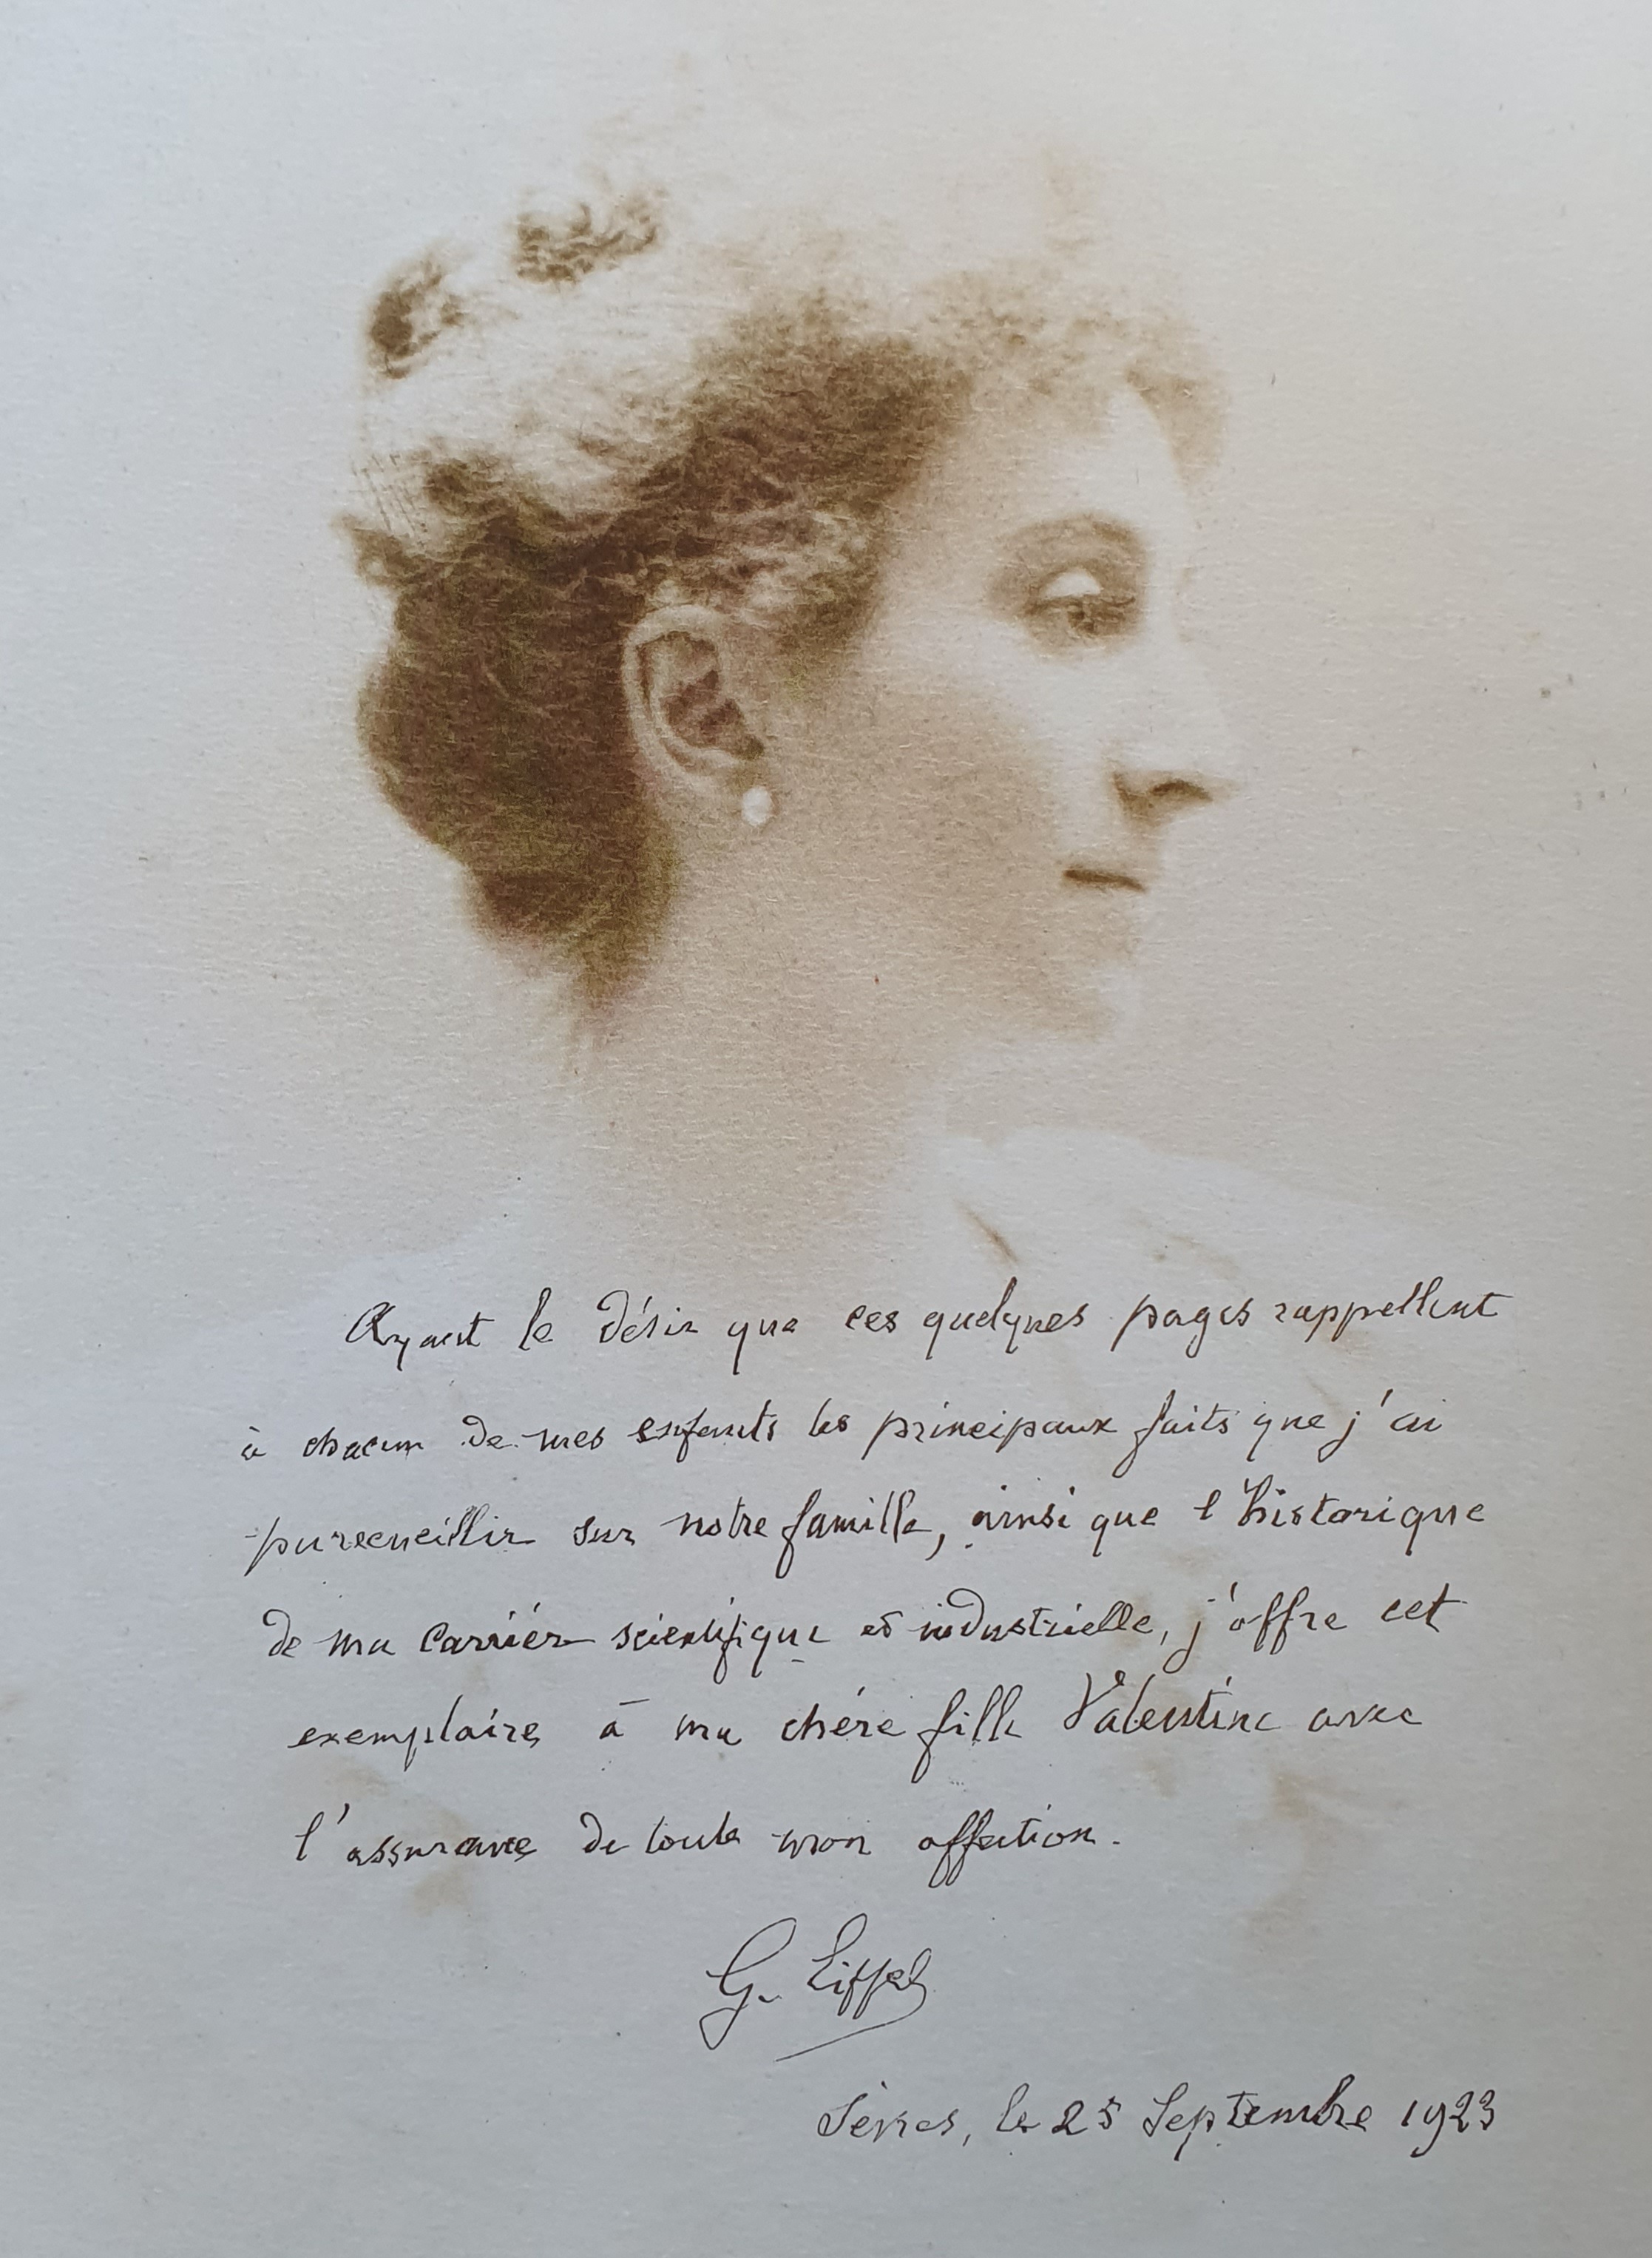 Ayant le désir que ces quelques pages rappellent
à chacun de mes enfants les principaux faits que j'ai
pu recueillir sur notre famille, ainsi que l'historique
de ma carrière scientifique et industrielle, j'offre cet
exemplaire à ma chère fille Valentine avec
l'assurance de toute mon affection.
G. Eiffel
Sèvres, le 25 Septembre 1923